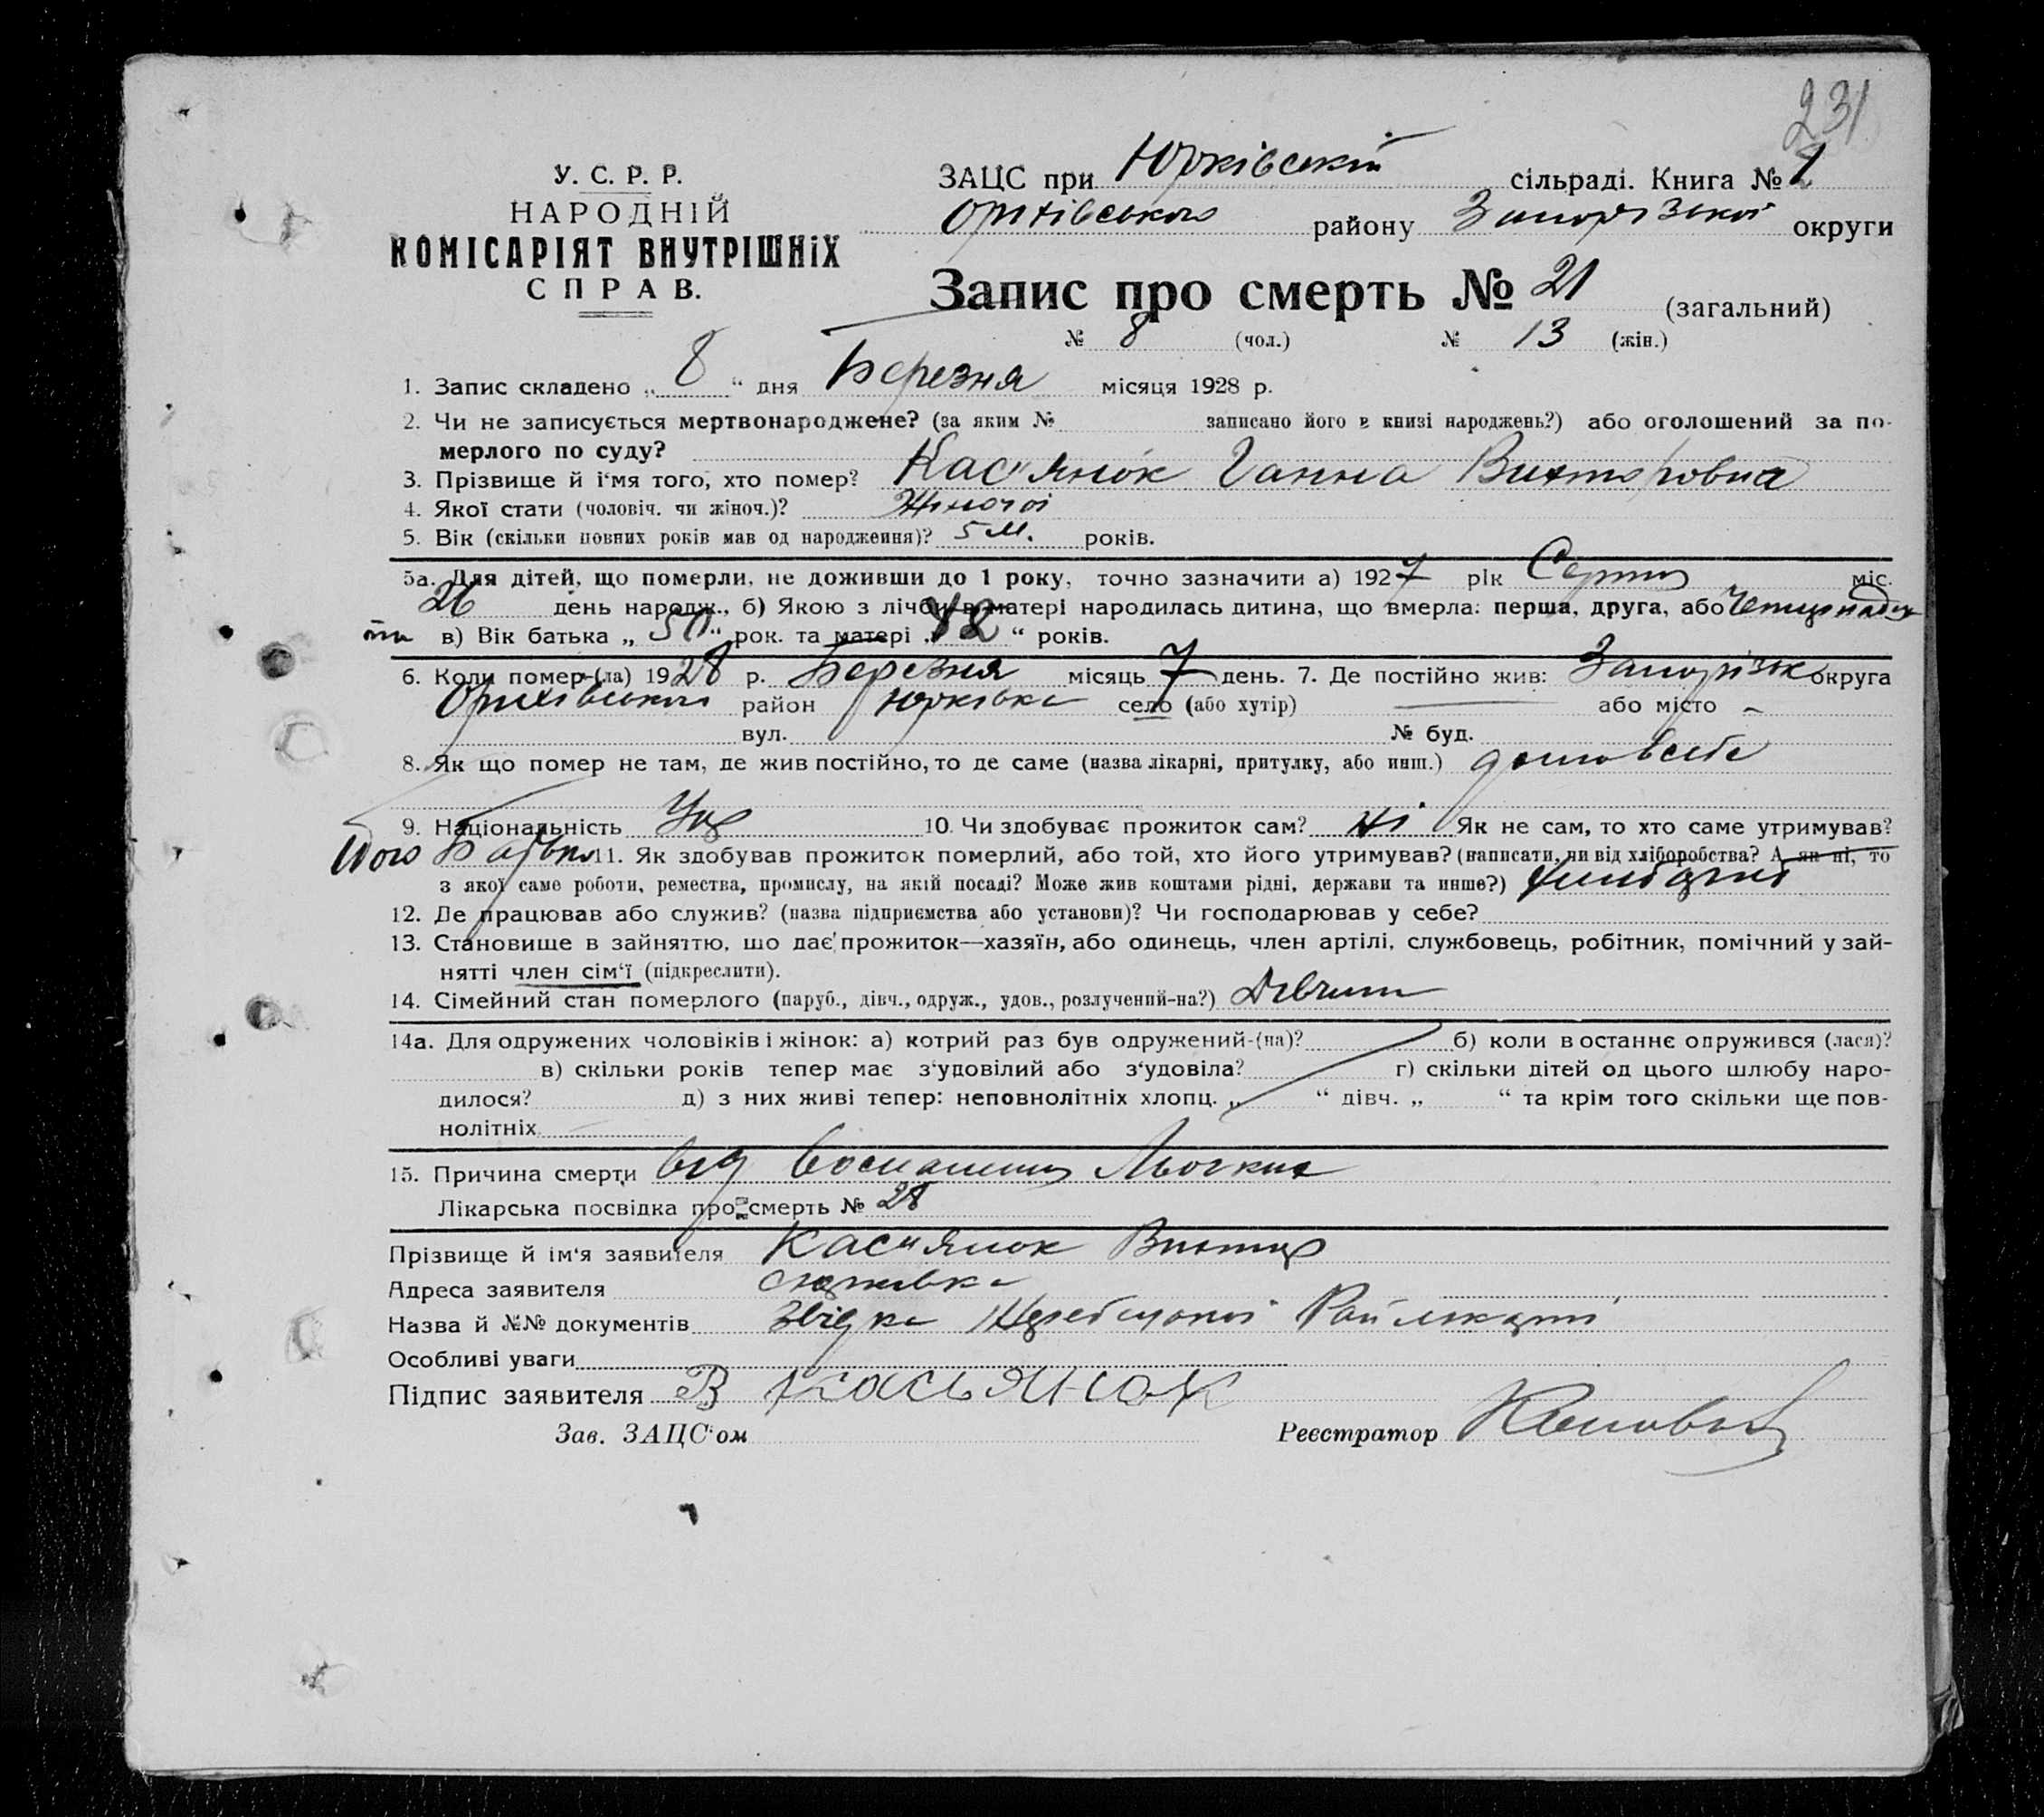 231
У. С. Р. Р.
НАРОДНІЙ
КОМІСАРІЯТ ВНУТРІШНІХ
СПРАВ.
ЗАЦС при Юрківській сільраді. Книга № 1
Оріхівського району Запорізької округи
Запис про смерть № 21 (загальний)
№ 8 (чол.) № 13 (жін.)
1. Запис складено „ 8 “ дня Березня місяця 1928 р.
2. Чи не записується мертвонароджене? (за яким № записано його в книзі народжень?) або оголошений за по-
мерлого по суду?
3. Прізвище й і‘мя того, хто помер? Кас"янюк Ганна Вікторовна
4. Якої стати (чоловіч. чи жіноч.)? Жіночої
5. Вік (скільки повних років мав од народження)? 5 м. років.
5а. Для дітей, що померли, не доживши до 1 року, точно зазначити а) 1927 рік Серпня міс.
26 день народж., б) Якою з лічби в матері народилась дитина, що вмерла: перша, друга, або Чотирнадця
та в) Вік батька „ 50 “ рок. та матері „ 42 “ років.
6. Коли помер-(ла) 1928 р. Березня місяць 7 день. 7. Де постійно жив: Запорізьк округа
Оріхівського район Юрківка село (або хутір) — або місто -
вул. № буд.
8. Як що помер не там, де жив постійно, то де саме (назва лікарні, притулку, або инш.) дома в себе
9. Національність Укр 10. Чи здобуває прожиток сам? Ні Як не сам, то хто саме утримував?
його Батько 11. Як здобував прожиток померлий, або той, хто його утримував? (написати, чи від хліборобства? А як ні, то
з якої саме роботи, ремества, промислу, на якій посаді? Може жив коштами рідні, держави та инше?)
12. Де працював або служив? (назва підприємства або установи)? Чи господарював у себе?
13. Становище в зайняттю, що дає прожиток—хазяїн, або одинець, член артілі, службовець, робітник, помічний у зай-
нятті член сім‘ї (підкреслити).
14. Сімейний стан померлого (паруб., дівч., одруж., удов., розлучений-на?) Дівчина
14а. Для одружених чоловіків і жінок: а) котрий раз був одружений-(на)? б) коли в останнє одружився (лася)?
в) скільки років тепер має з‘удовілий або з‘удовіла? г) скільки дітей од цього шлюбу наро-
дилося? д) з них живі тепер: неповнолітніх хлопц. „ “ дівч. „ “ та крім того скільки ще пов-
нолітніх
15. Причина смерти від Воспалення Льогких
Лікарська посвідка про смерть № 28
Прізвище й ім‘я заявителя Кас"янюк Віктор
Адреса заявителя с Юрківка
Назва й №№ документів Звідка Жеребецької Райлікарні
Особливі уваги
Підпис заявителя В Касьянюк
Зав. ЗАЦС‘ом Реєстратор